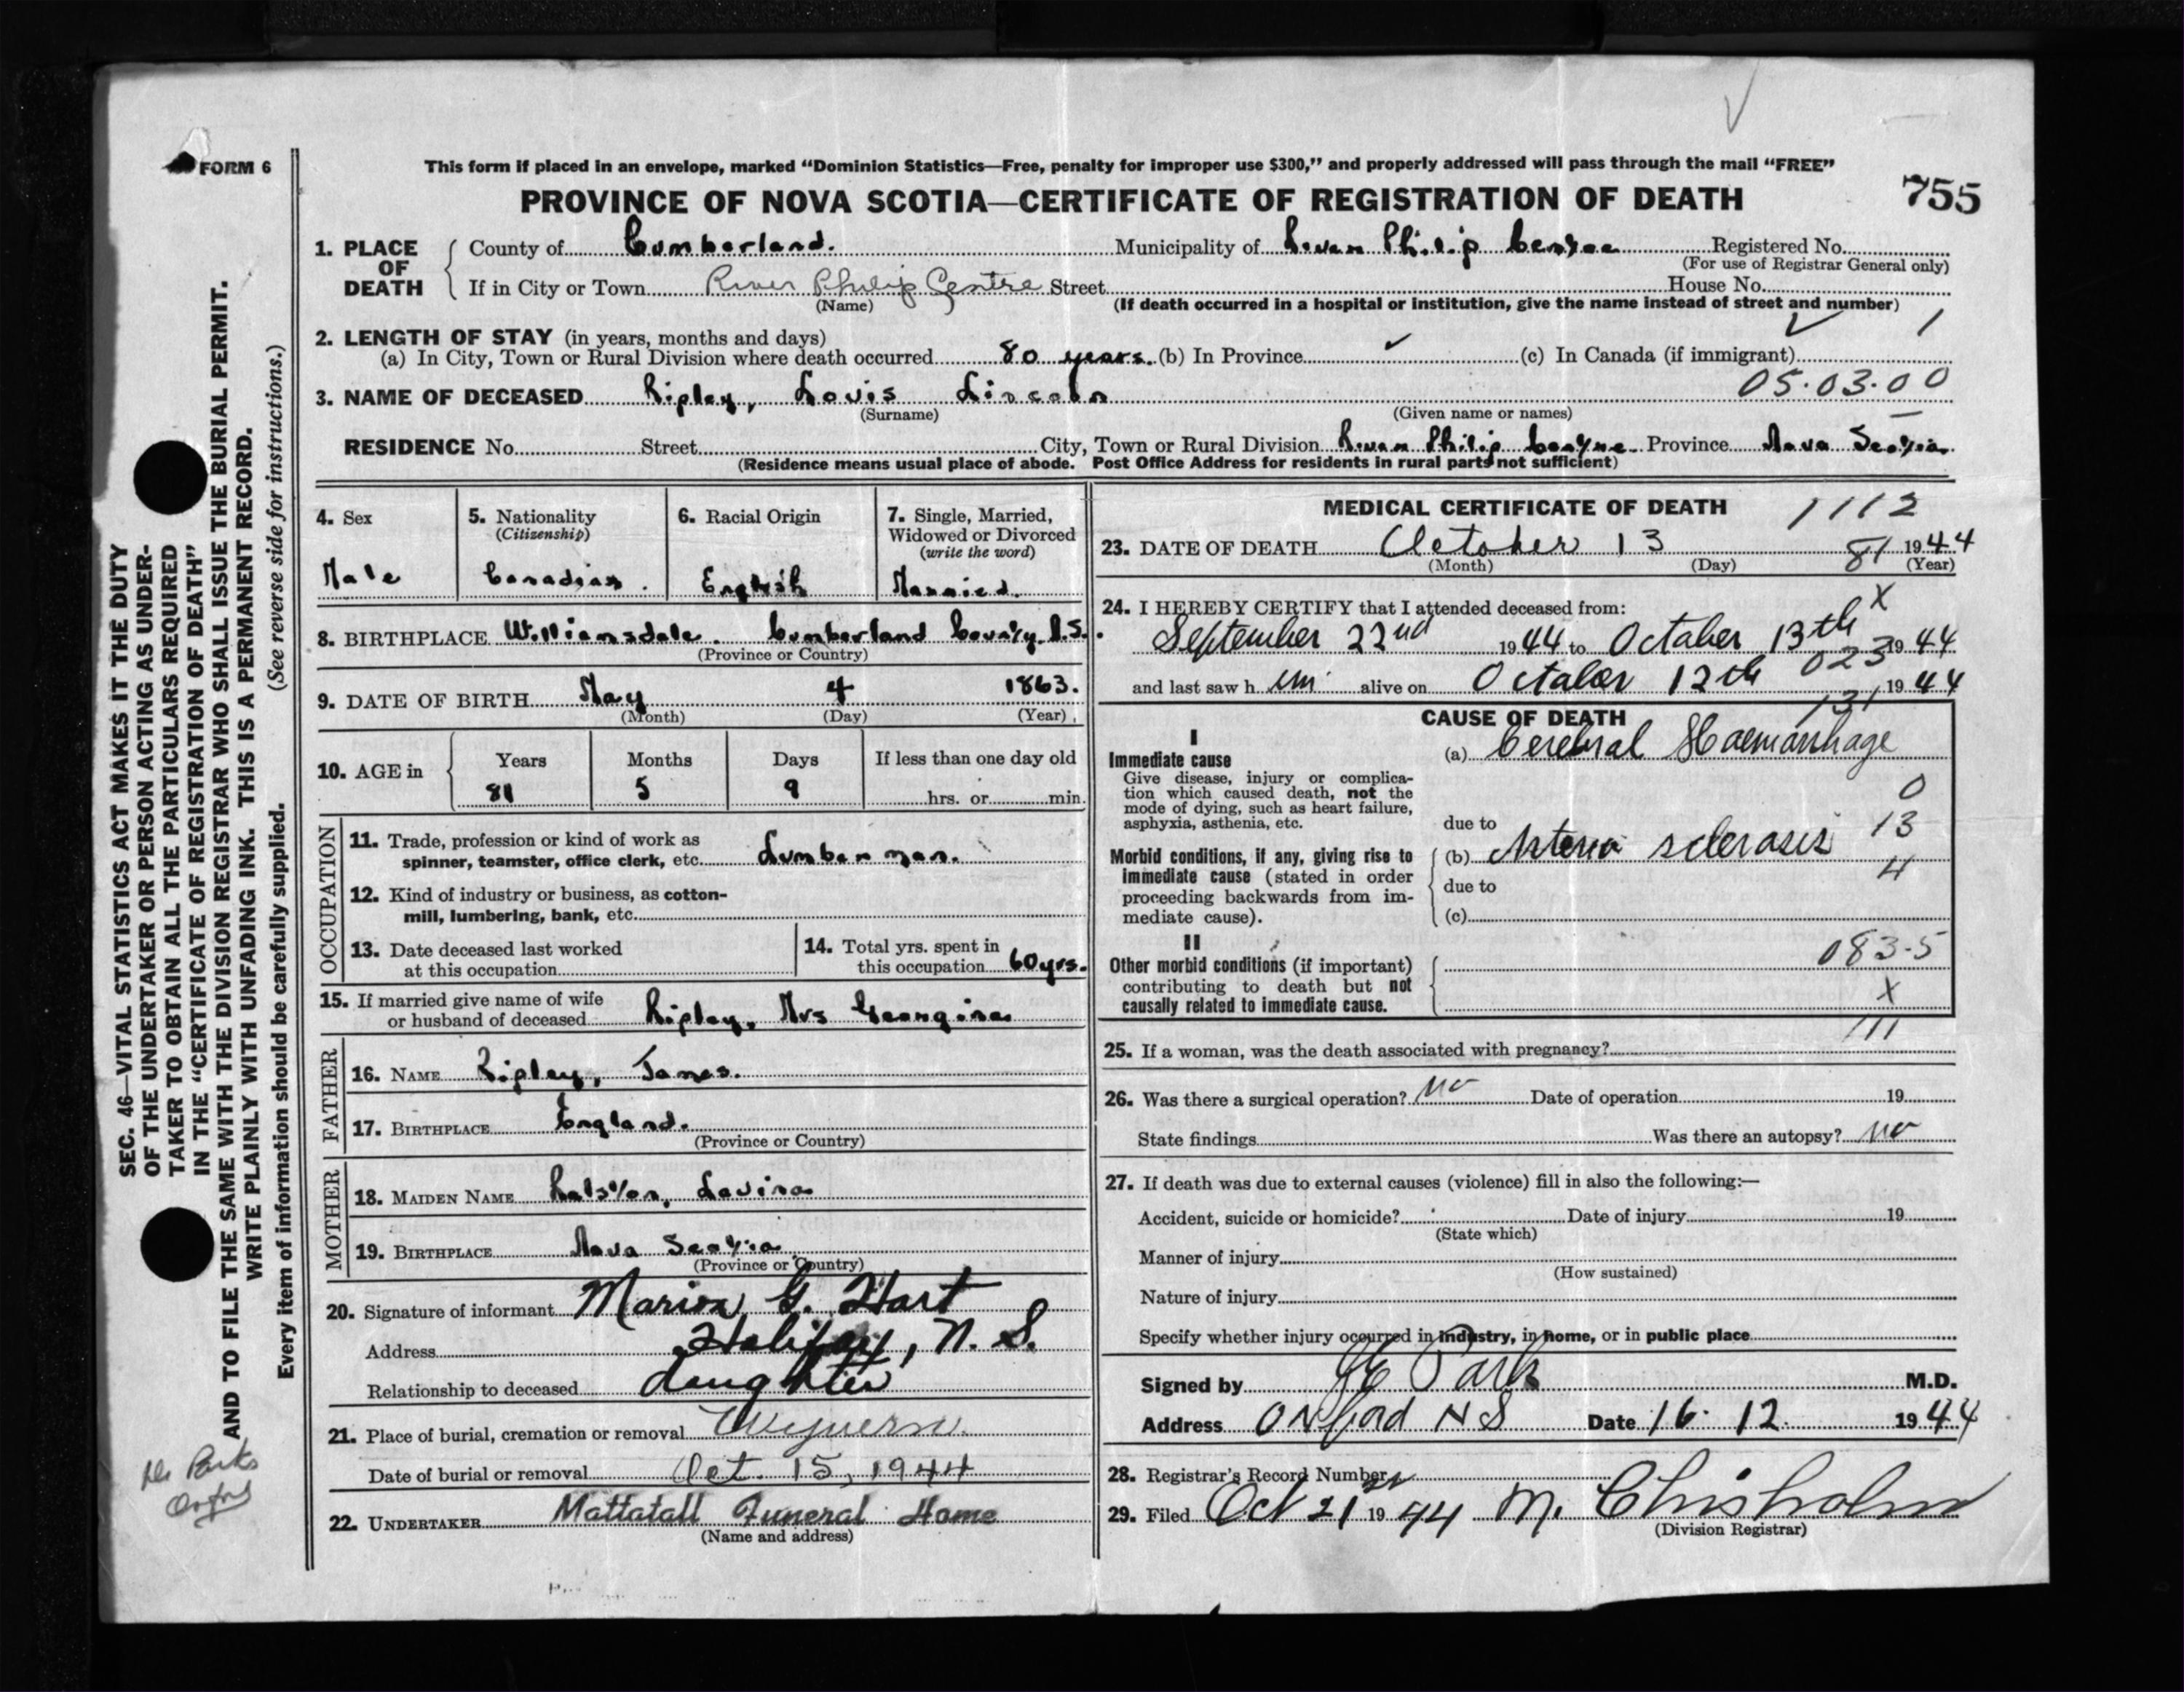 FORM 6
This form if placed in an envelope, marked “Dominion Statistics—Free, penalty for improper use $300,” and properly addressed will pass through the mail “FREE”
PROVINCE OF NOVA SCOTIA—CERTIFICATE OF REGISTRATION OF DEATH
755
1. PLACE OF DEATH
County of Cumberland. Municipality of River Philip Centre Registered No.
(For use of Registrar General only)
If in City or Town River Philip Centre Street House No.
(Name) (If death occurred in a hospital or institution, give the name instead of street and number)
2. LENGTH OF STAY (in years, months and days) 1
(a) In City, Town or Rural Division where death occurred 80 years. (b) In Province (c) In Canada (if immigrant)
05.03.00
3. NAME OF DECEASED Ripley, Lovis Lincoln
(Surname) (Given name or names)
RESIDENCE No. Street City, Town or Rural Division River Philip Centre Province Nova Scotia.
(Residence means usual place of abode. Post Office Address for residents in rural parts not sufficient)
4. Sex
Male
5. Nationality
(Citizenship)
Canadian.
6. Racial Origin
English
7. Single, Married,
Widowed or Divorced
(write the word)
Married.
8. BIRTHPLACE Williamsdale. Cumberland County N.S.
(Province or Country)
9. DATE OF BIRTH May 4 1863.
(Month) (Day) (Year)
10. AGE in
Years Months Days If less than one day old
81 5 9 hrs. or min.
OCCUPATION
11. Trade, profession or kind of work as
spinner, teamster, office clerk, etc. Lumberman.
12. Kind of industry or business, as cotton-
mill, lumbering, bank, etc.
13. Date deceased last worked
at this occupation
14. Total yrs. spent in
this occupation 60 yrs.
15. If married give name of wife
or husband of deceased Ripley, Mrs Georgina
FATHER
16. NAME Ripley, James.
17. BIRTHPLACE England.
(Province or Country)
MOTHER
18. MAIDEN NAME Ralston, Lavina
19. BIRTHPLACE Nova Scotia
(Province or Country)
20. Signature of informant Marion G. Hart
Address Halifax, N. S.
Relationship to deceased daughter
21. Place of burial, cremation or removal
Date of burial or removal Oct. 15, 1944
22. UNDERTAKER Mattatall Funeral Home
(Name and address)
MEDICAL CERTIFICATE OF DEATH
1112
23. DATE OF DEATH October 13 81 1944
(Month) (Day) (Year)
24. I HEREBY CERTIFY that I attended deceased from: X
September 22nd 1944 to October 13th 1944
023
and last saw h im alive on October 12th 1944
131
CAUSE OF DEATH
I
Immediate cause
Give disease, injury or complica-
tion which caused death, not the
mode of dying, such as heart failure,
asphyxia, asthenia, etc.
(a) Cerebral Haemorrhage
0
due to
13
Morbid conditions, if any, giving rise to
immediate cause (stated in order
proceeding backwards from im-
mediate cause).
(b) Arterio sclerosis
4
due to
(c)
II
Other morbid conditions (if important)
contributing to death but not
causally related to immediate cause.
083-5
X
111
25. If a woman, was the death associated with pregnancy?
26. Was there a surgical operation? no Date of operation 19
State findings Was there an autopsy? no
27. If death was due to external causes (violence) fill in also the following:—
Accident, suicide or homicide? Date of injury 19
(State which)
Manner of injury
(How sustained)
Nature of injury
Specify whether injury occurred in industry, in home, or in public place
Signed by Park M.D.
Address Oxford N S Date 16. 12. 1944
28. Registrar's Record Number
29. Filed Oct 21st 1944 M. Chisholm
(Division Registrar)
SEC. 46—VITAL STATISTICS ACT MAKES IT THE DUTY
OF THE UNDERTAKER OR PERSON ACTING AS UNDER-
TAKER TO OBTAIN ALL THE PARTICULARS REQUIRED
IN THE “CERTIFICATE OF REGISTRATION OF DEATH”
AND TO FILE THE SAME WITH THE DIVISION REGISTRAR WHO SHALL ISSUE THE BURIAL PERMIT.
WRITE PLAINLY WITH UNFADING INK. THIS IS A PERMANENT RECORD.
Every item of information should be carefully supplied. (See reverse side for instructions.)
Dr Parks
Oxford